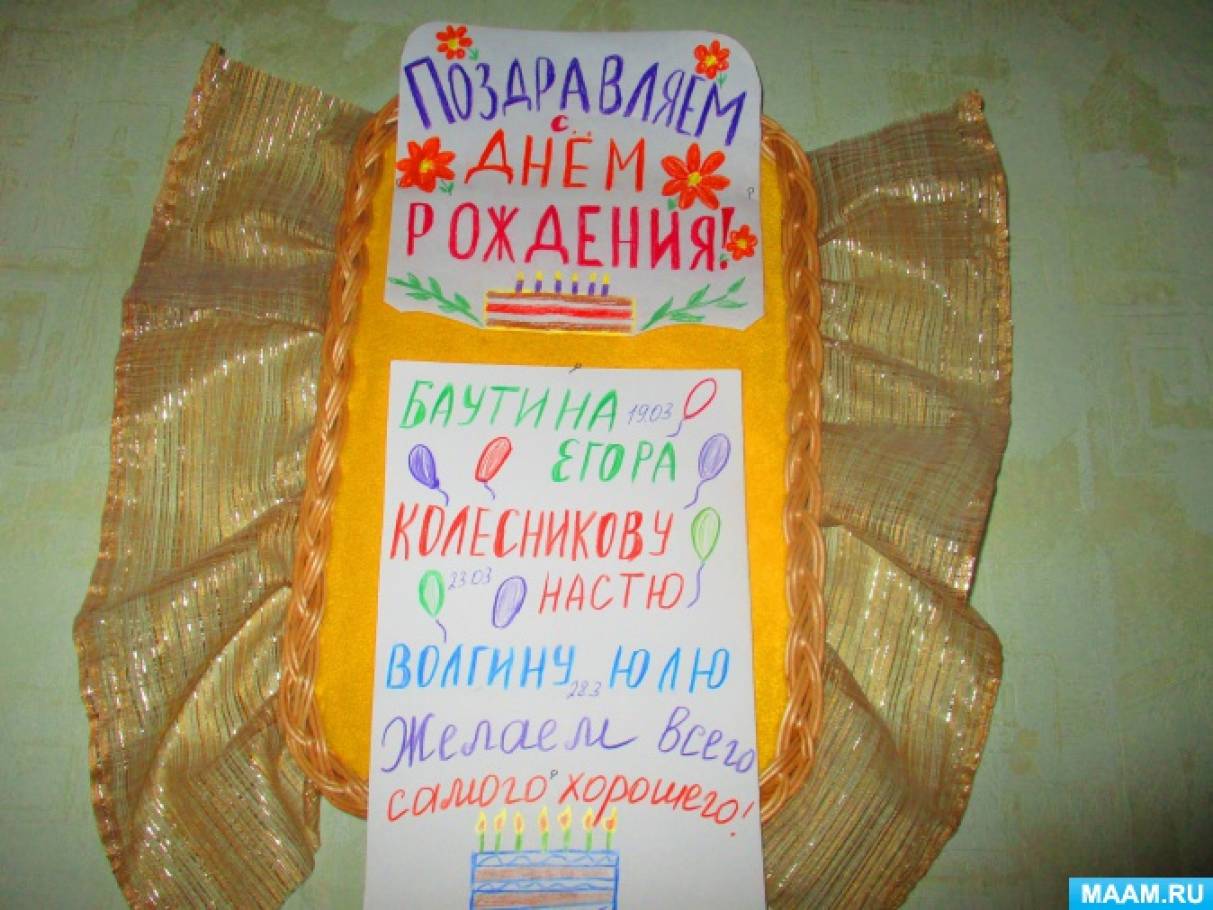 ПОЗДРАВЛЯЕМ
С
ДНЁМ
РОЖДЕНИЯ!
БАУТИНА 19.03
ЕГОРА
КОЛЕСНИКОВУ
23.03 НАСТЮ
ВОЛГИНУ ЮЛЮ
28.3
Желаем всего
самого хорошего!
MAAM.RU